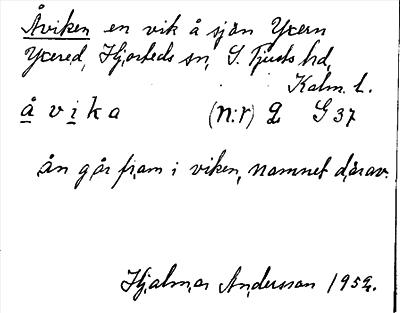 Åviken en vik å sjön Yxern
Yxered, Hjorteds sn, S. Tjusts hd,
Kalm. l.
åvika (n:r) 2 G 37
ån går fram i viken, namnet därav.
Hjalmar Andersson 1952.